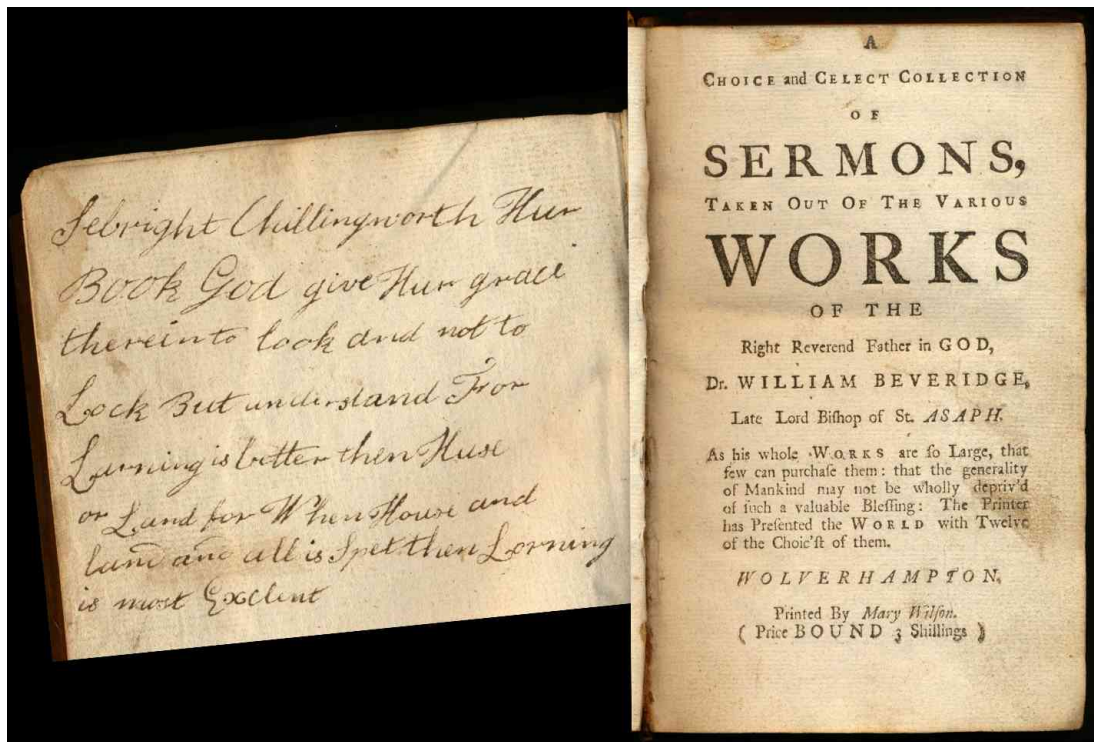 Sebright Chillingworth Hur
Book God give Hur grace
therein to look and not to
Lock But understand For
Larning is better then Huse
or Land for When House and
land and all is Spet then Lorning
is most Exclent
A
CHOICE and CELECT COLLECTION
OF
SERMONS,
TAKEN OUT OF THE VARIOUS
WORKS
OF THE
Right Reverend Father in GOD,
Dr. WILLIAM BEVERIDGE,
Late Lord Biſhop of St. ASAPH.
As his whole WORKS are ſo Large, that
few can purchaſe them: that the generality
of Mankind may not be wholly depriv'd
of ſuch a valuable Bleſſing: The Printer
has Preſented the WORLD with Twelve
of the Choic'ſt of them.
WOLVERHAMPTON,
Printed By Mary Wilſon.
( Price BOUND 3 Shillings )